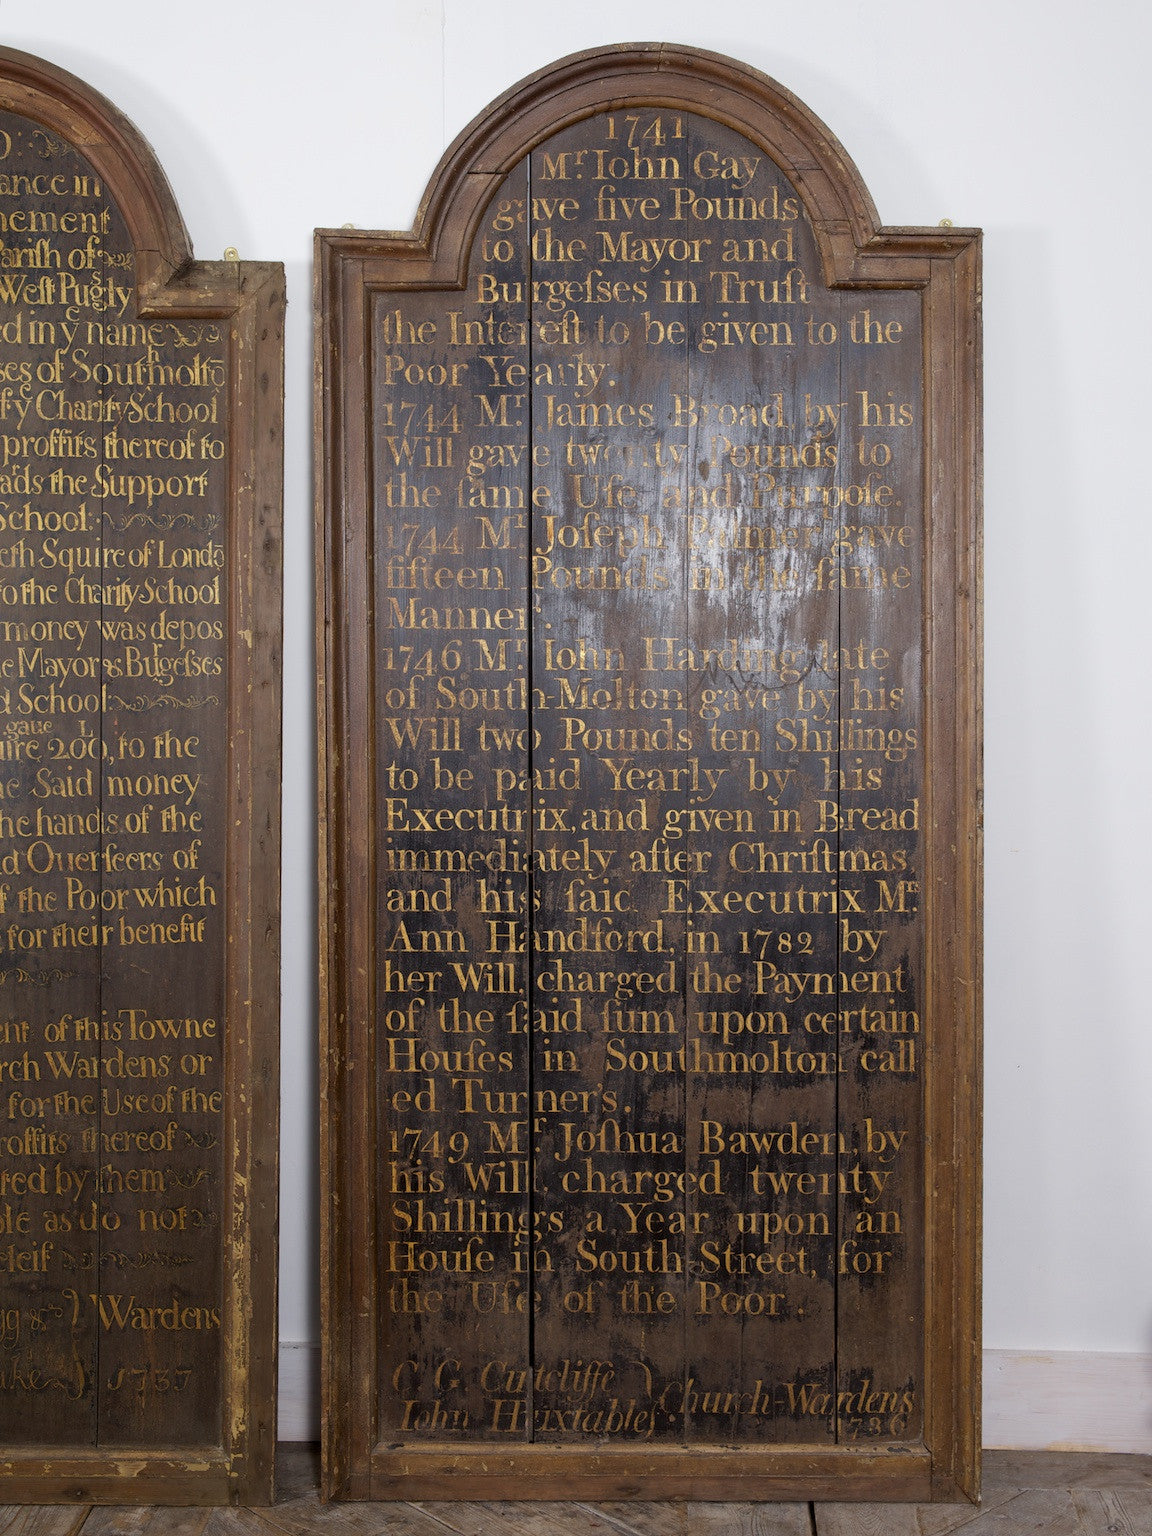 ance in
nement
Pariſh of
Weſt Pugſly
ed in yͤ name
ses of Southmolto̅
f yͤ Charity School
proffits thereof to
ards the Support
School
eth Squire of Londo̅
to the Charity School
money was depos
e Mayor & Burgeſses
d School
gaue L
uire 200, to the
he Said money
he hands of the
d Ouerſeers of
f the Poor which
for their benefit
ent of this Towne
rch Wardens or
for the Use of the
roffits thereof
red by them
ble as do not
eleif
gg & Wardens
ake 1737
1741
Mr. Iohn Gay
gave five Pounds
to the Mayor and
Burgeſses in Truſt
the Intereſt to be given to the
Poor Yearly.
1744 Mr. James Broad, by his
Will gave twenty Pounds to
the ſame Uſe and Purpoſe.
1744 Mr. Joſeph Palmer gave
fifteen Pounds in the ſame
Manner.
1746 Mr. Iohn Harding, late
of South-Molton gave by his
Will two Pounds ten Shillings
to be paid Yearly by his
Executrix, and given in Bread
immediately after Chriſtmas,
and his ſaid Executrix Mrs.
Ann Handford, in 1782 by
her Will, charged the Payment
of the ſaid ſum upon certain
Houſes in Southmolton call
ed Turner's.
1749 Mr. Joſhua Bawden, by
his Will, charged twenty
Shillings a Year upon an
Houſe in South Street, for
the Uſe of the Poor.
C G Cutcliffe
Church-Wardens
Iohn Huxtable
1786